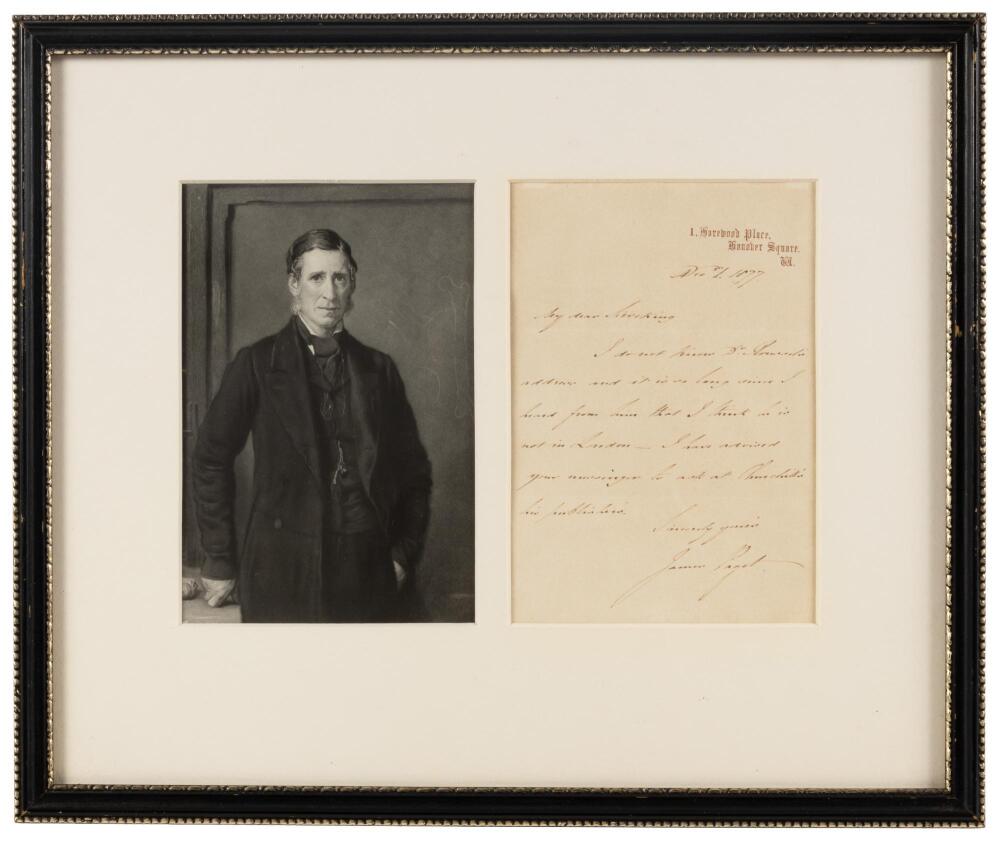 1, Harewood Place,
Hanover Square.
W.
Dec 1. 1877
My dear
I do not know Dr
address and it is so long since I
heard from him that I think he is
not in London — I have advised
your messenger to ask at Churchill's
his publishers.
Sincerely yours
James Paget